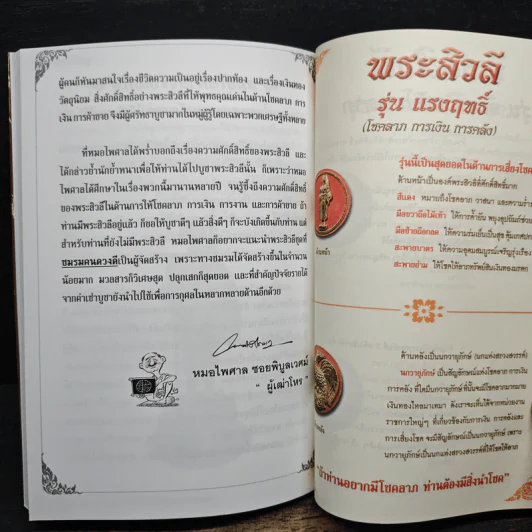 ผู้คนหันมาสนใจเรื่องชีวิตความเป็นอยู่เรื่องปากท้อง และเรื่องเงินทอง
วัตถุนิยม สิ่งศักดิ์สิทธิ์อย่างพระสิวลีที่ให้พุทธคุณเด่นในด้านโชคลาภ การ
เงิน การค้าขาย จึงมีผู้ศรัทธาบูชามากในหมู่ผู้รู้โดยเฉพาะพวกเศรษฐีทั้งหลาย
ที่หมอไพศาลได้พร่ำบอกถึงเรื่องความศักดิ์สิทธิ์ของพระสิวลี และ
ได้กล่าวย้ำนักย้ำหนาเพื่อให้ท่านได้ไปบูชาพระสิวลีนั้น ก็เพราะว่าหมอ
ไพศาลได้ศึกษาในเรื่องพวกนี้มานานหลายปี จนรู้ซึ้งถึงความศักดิ์สิทธิ์
ของพระสิวลีในด้านการให้โชคลาภ การเงิน การงาน และการค้าขาย ถ้า
ท่านมีพระสิวลีอยู่แล้ว ก็ขอให้บูชาดีๆ แล้วสิ่งดีๆ ก็จะบังเกิดขึ้นกับท่าน แต่
สำหรับท่านที่ยังไม่มีพระสิวลี หมอไพศาลก็อยากจะแนะนำพระสิวลีชุดที่
ชมรมคนดวงดีเป็นผู้จัดสร้าง เพราะทางชมรมได้จัดสร้างขึ้นในจำนวน
น้อยมาก มวลสารก็วิเศษสุด ปลุกเสกก็สุดยอด และที่สำคัญปัจจัยรายได้
จากค่าเช่าบูชายังนำไปใช้เพื่อการกุศลในหลากหลายด้านอีกด้วย
หมอไพศาล ซอยพิบูลเวศม์
" ผู้เฒ่าโหร "
พระสิวลี
รุ่น แรงฤทธิ์
(โชคลาภ การเงิน การคลัง)
รุ่นนี้เป็นสุดยอดในด้านการเสี่ยงโชค
ด้านหน้าเป็นองค์พระสิวลีที่ศักดิ์สิทธิ์มาก
สีแดง หมายถึงโชคลาภ วาสนา และความร่ำ
มือขวาถือไม้เท้า ให้การค้ำยัน
มือซ้ายถือกลด ให้ความร่มเย็นเป็นสุข
สะพายบาตร ให้ความอุดมสมบูรณ์เจริญรุ่งเรือง
สะพายย่าม ให้โชคให้ลาภทรัพย์สินเงินทอง
ด้านหลังเป็นนกวายุภักษ์ (นกแห่งสรวงสวรรค์)
นกวายุภักษ์ เป็นสัญลักษณ์แห่งโชคลาภ การเงิน
การคลัง ที่ใดมีนกวายุภักษ์ที่นั้นจะมีโชคลาภมากมาย
เงินทองไหลมาเทมา ดังเราจะเห็นได้จากหน่วยงาน
ราชการใหญ่ๆ ที่เกี่ยวข้องกับการเงิน การคลังและ
การเสี่ยงโชค จะมีสัญลักษณ์เป็นนกวายุภักษ์ เพราะ
นกวายุภักษ์เป็นนกแห่งสรวงสวรรค์ที่ให้โชคให้ลาภ
ถ้าท่านอยากมีโชคลาภ ท่านต้องมีสิ่งนำโชค"